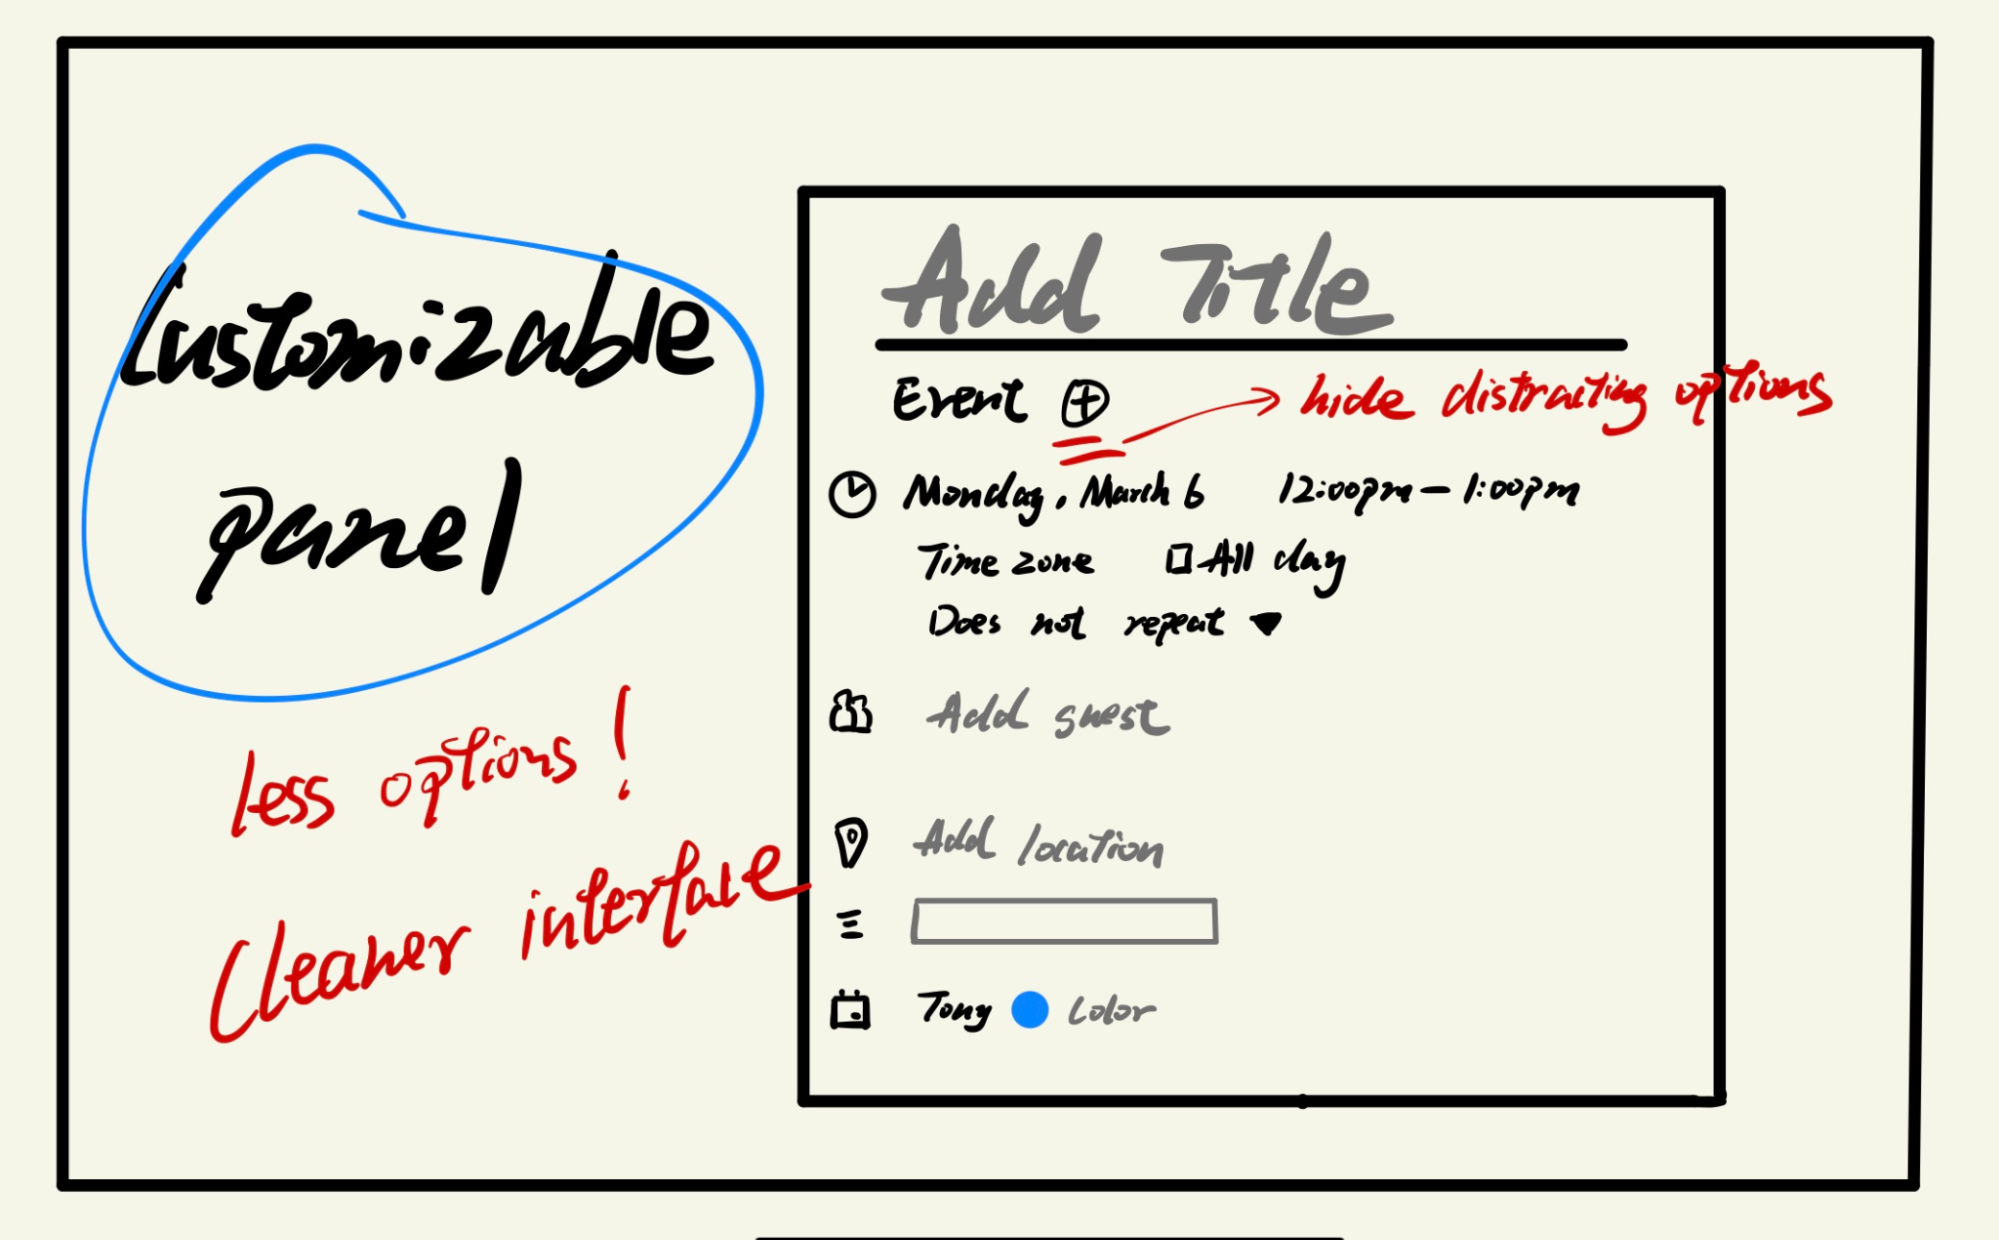 Customizable
panel
less options!
Cleaner interface
Add Title
Event
hide distracting options
Monday, March 6 12:00pm – 1:00pm
Time zone All day
Does not repeat
Add guest
Add location
Tony Color